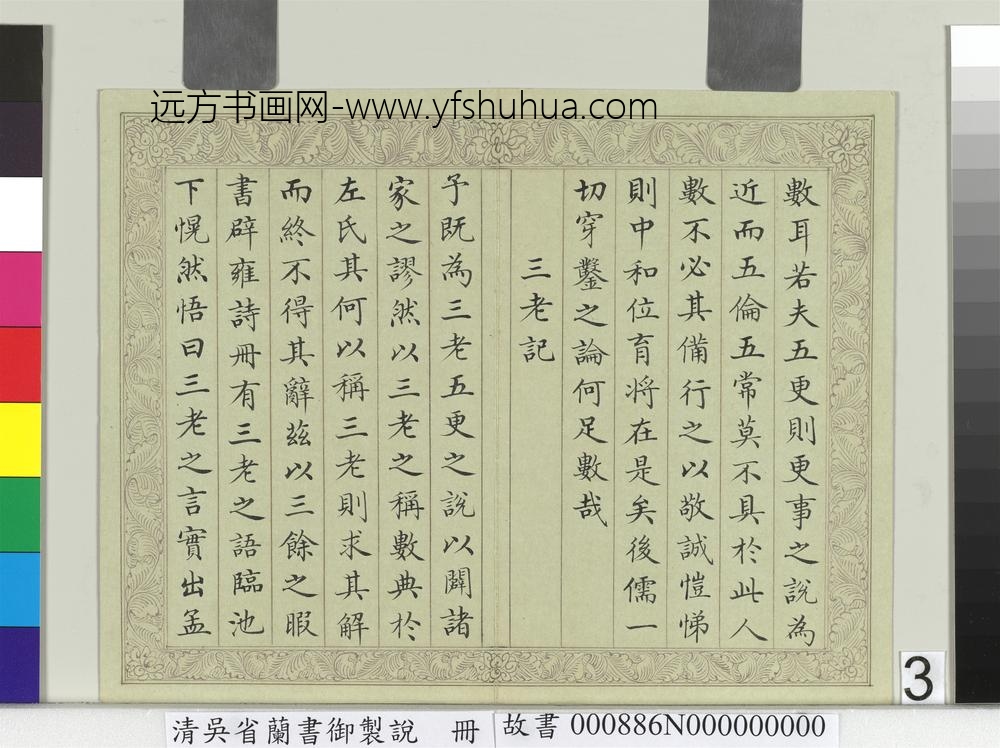 远方书画网-www.yfshuhua.com
數耳若夫五更則更事之說為
近而五倫五常莫不具於此人
數不必其備行之以敬誠愷悌
則中和位育將在是矣後儒一
切穿鑿之論何足數哉
三老記
予既為三老五更之說以闢諸
家之謬然以三老之稱數典於
左氏其何以稱三老則求其解
而終不得其辭茲以三餘之暇
書辟雍詩冊有三老之語臨池
下愰然悟曰三老之言實出孟
3
清吳省蘭書御製說 冊
故書 000886N000000000